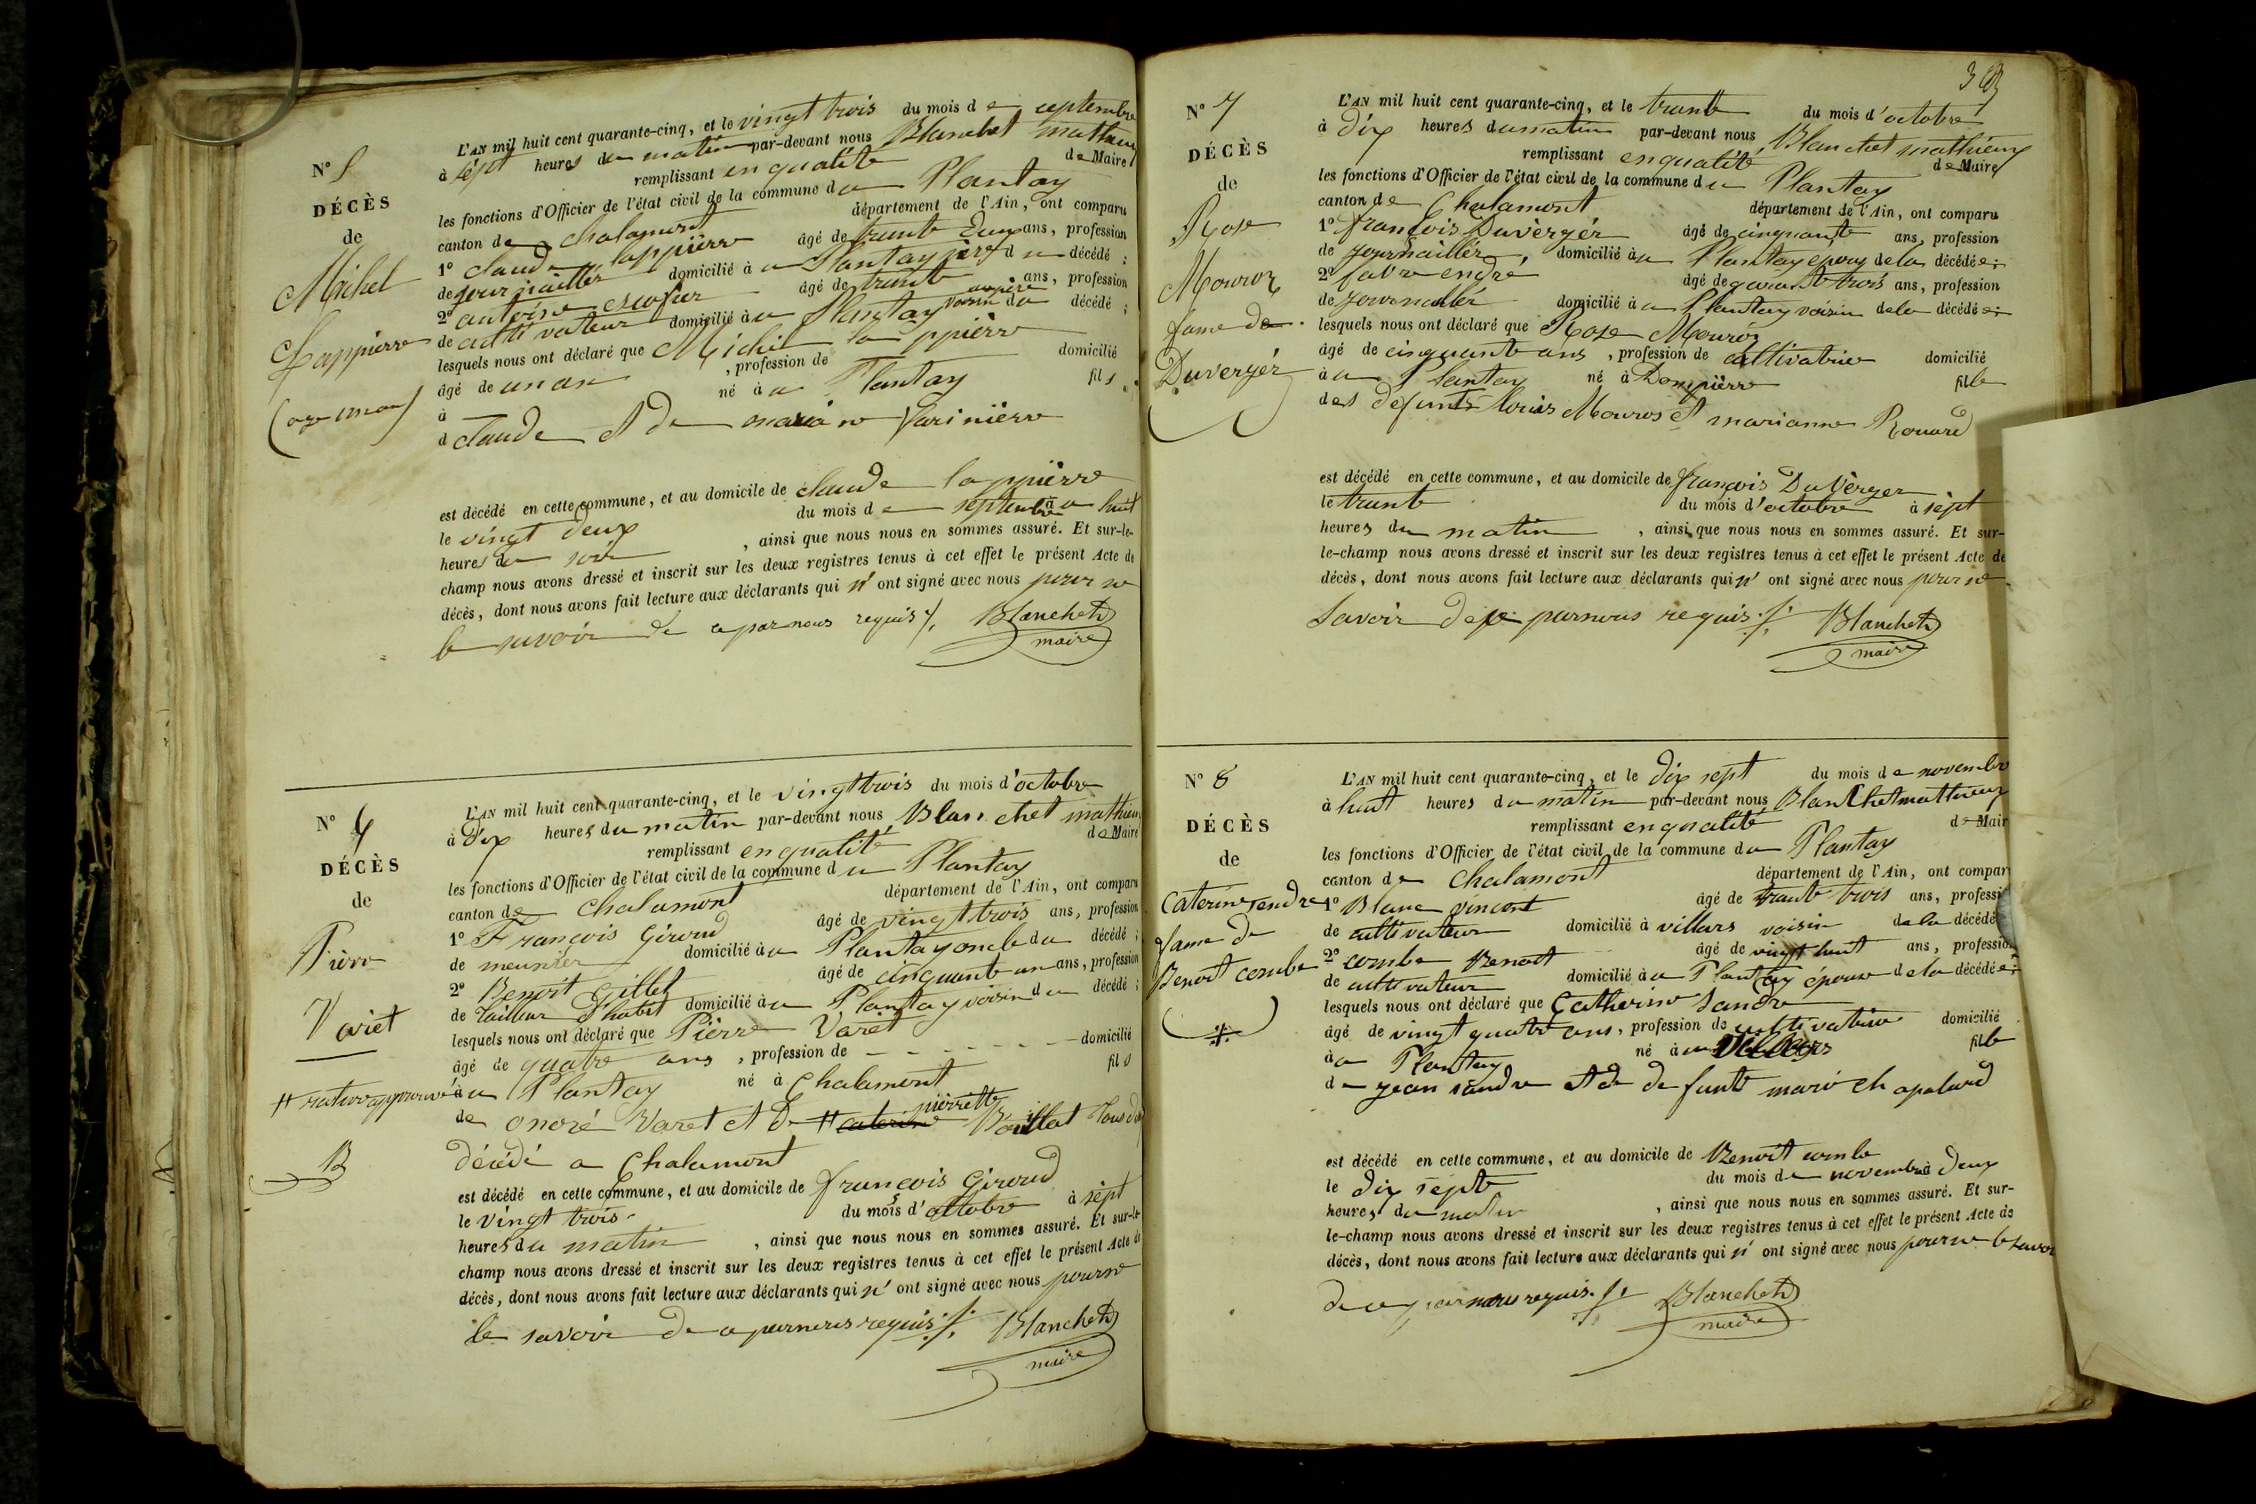 N° 5
DÉCÈS
de
Michel
Lappierre
(age un an)
L'AN mil huit cent quarante-cinq, et le vingt trois du mois de septembre
à sept heures du matin par-devant nous Blanchet mathieux
remplissant en qualité de Maire
les fonctions d'Officier de l'état civil de la commune du Plantay
canton de chalamont département de l'Ain, ont comparu
1° claude lappierre âgé de trente Deux ans, profession
de journaillér domicilié à u Plantay père du décédé ;
2° antoine escofier âgé de trente ans, profession
de cultivateur domicilié à u Plantay voisin du décédé ;
lesquels nous ont déclaré que Michel lappierre
âgé de un an , profession de domicilié
à né à u Plantay fils
d claude et de
est décédé en cette commune, et au domicile de claude lappierre
le vingt deux du mois de septembre à huit
heures du soir , ainsi que nous nous en sommes assuré. Et sur-le-
champ nous avons dressé et inscrit sur les deux registres tenus à cet effet le présent Acte de
décès, dont nous avons fait lecture aux déclarants qui n' ont signé avec nous pour ne
le savoir de ce par nous requis ./. Blanchet
maire
N° 6
DÉCÈS
de
Pierre
Varet
# rature approuvé
B
L'AN mil huit cent quarante-cinq, et le vingt trois du mois d'octobre
à Dix heures du matin par-devant nous Blanchet mathieux
remplissant en qualité de Maire
les fonctions d'Officier de l'état civil de la commune du Plantay
canton de chalamont département de l'Ain, ont comparu
1° François Giroud âgé de vingt trois ans, profession
de meunier domicilié à u Plantay oncle du décédé ;
2° Benoit Gillet âgé de cinquante un ans, profession
de tailleur D'habit domicilié à u Plantay voisin du décédé ;
lesquels nous ont déclaré que Pierre Varet
âgé de quatre ans , profession de - - - - - domicilié
à u Plantay né à Chalamont fils
de onoré Varet et De # caterine pierrette Boillat Tous deux
décédé a Chalamont
est décédé en cette commune, et au domicile de françois Giroud
le vingt trois du mois d'octobre à sept
heures du matin , ainsi que nous nous en sommes assuré. Et sur-le-
champ nous avons dressé et inscrit sur les deux registres tenus à cet effet le présent Acte de
décès, dont nous avons fait lecture aux déclarants qui n' ont signé avec nous pour ne
le savoir de ce par nous requis ./. Blanchet
maire
N° 7
DÉCÈS
de
Rose
Mouroz
fame de
Duvergér
L'AN mil huit cent quarante-cinq, et le trente du mois d'octobre
à dix heures du matin par-devant nous Blanchet mathieux
remplissant en qualité de Maire
les fonctions d'Officier de l'état civil de la commune du Plantay
canton de Chalamont département de l'Ain, ont comparu
1° françois Duvergér âgé de cinquante ans, profession
de journaillér domicilié à u Plantay epoux de la décédée ;
2° favre endré âgé de quarante trois ans, profession
de journallér domicilié à u Plantay voisin de la décédée ;
lesquels nous ont déclaré que Rose Mouroz
âgé de cinquante ans , profession de cultivatrice domicilié
à u Plantay né à Dompierre fille
des defunts louis Mouros et marianne Rouard
est décédé en cette commune, et au domicile de françois Duverger
le trente du mois d'octobre à sept
heures du matin , ainsi que nous nous en sommes assuré. Et sur-
le-champ nous avons dressé et inscrit sur les deux registres tenus à cet effet le présent Acte de
décès, dont nous avons fait lecture aux déclarants qui n' ont signé avec nous pour ne
savoir de ce par nous requis ./. Blanchet
maire
N° 8
DÉCÈS
de
Caterine sendre
fame de
Benoit combe
L'AN mil huit cent quarante-cinq, et le dix sept du mois de novembre
à huit heures du matin par-devant nous Blanchet mathieux
remplissant en qualité de Mair
les fonctions d'Officier de l'état civil de la commune du Plantay
canton de Chalamont département de l'Ain, ont compar
1° Blanc vincent âgé de trente trois ans, professi
de cultivateur domicilié à villars voisin de la décédé
2° combe Benoit âgé de vingt huit ans, professio
de cultivateur domicilié à u Plantay époux de la décédée ;
lesquels nous ont déclaré que Catherine sandre
âgé de vingt quatre ans, profession de cultivatrice domicilié
à u Plantay né à fille
de jean sandre et de defunte marie chapelard
est décédé en cette commune, et au domicile de Benoit combe
le dix sept du mois de novembre à deux
heures du matin , ainsi que nous nous en sommes assuré. Et sur-
le-champ nous avons dressé et inscrit sur les deux registres tenus à cet effet le présent Acte de
décès, dont nous avons fait lecture aux déclarants qui n' ont signé avec nous pour ne le savoir
de ce par nous requis ./. Blanchet
maire